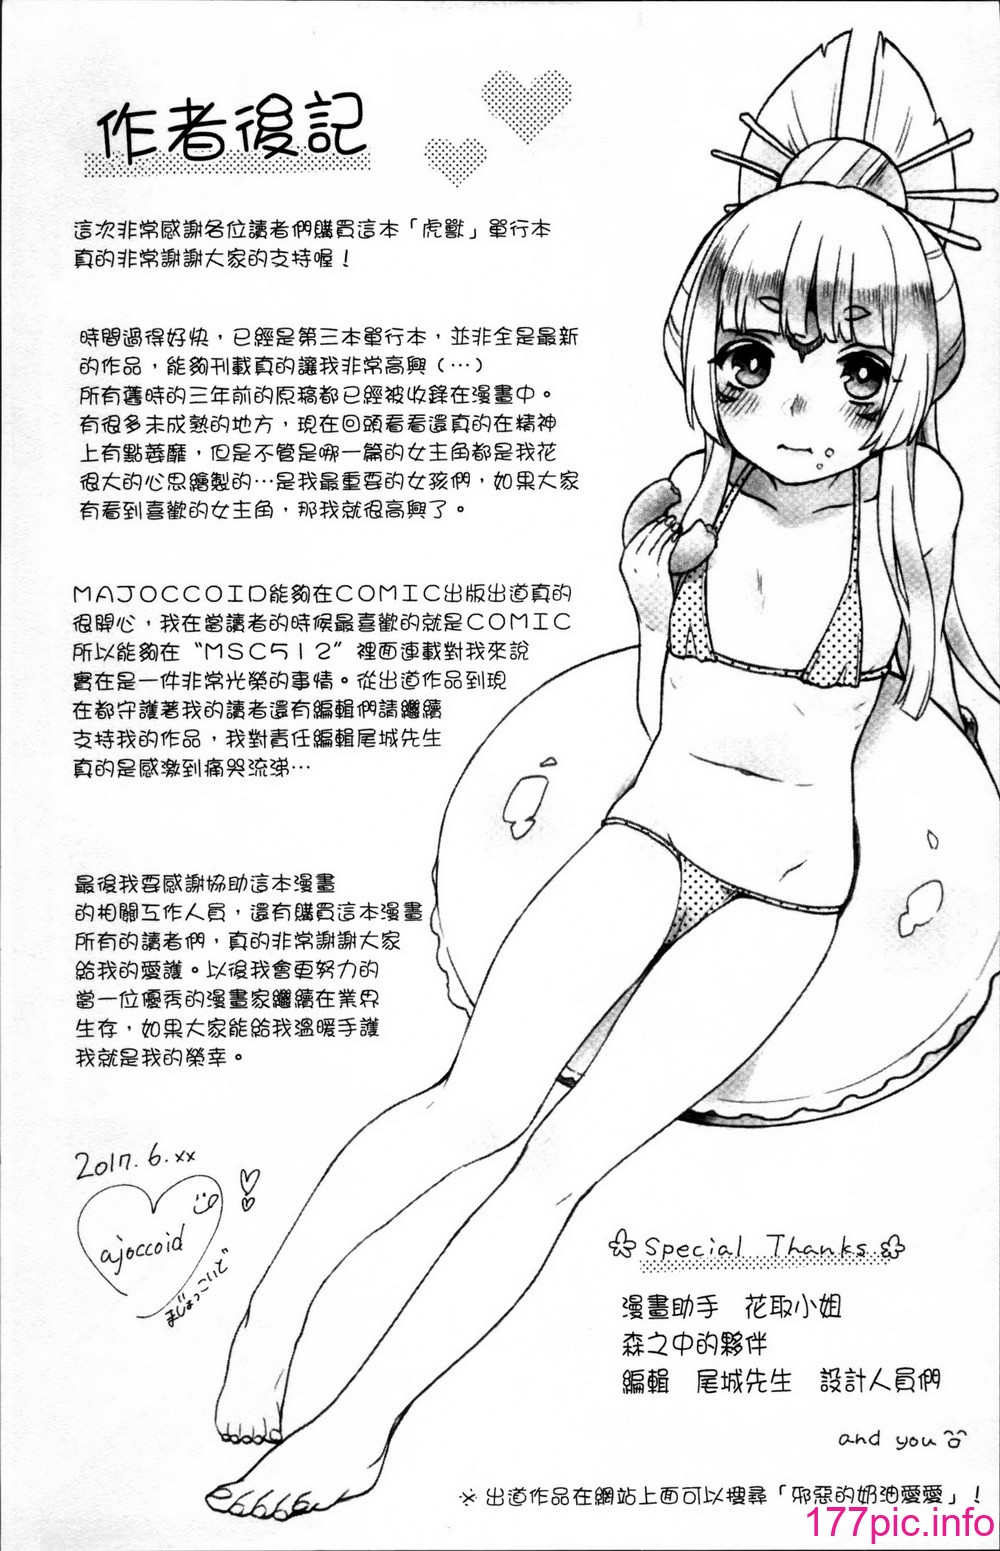 作者後記
這次非常感謝各位讀者們購買這本「虎獸」單行本
真的非常謝謝大家的支持喔！
時間過得好快，已經是第三本單行本，並非全是最新
的作品，能夠刊載真的讓我非常高興（…）
所有舊時的三年前的原稿都已經被收錄在漫畫中。
有很多未成熟的地方，現在回頭看看還真的在精神
上有點萎靡，但是不管是哪一篇的女主角都是我花
很大的心思繪製的…是我最重要的女孩們，如果大家
有看到喜歡的女主角，那我就很高興了。
MAJOCCOID能夠在COMIC出版出道真的
很開心，我在當讀者的時候最喜歡的就是COMIC
所以能夠在“MSC512”裡面連載對我來說
實在是一件非常光榮的事情。從出道作品到現
在都守護著我的讀者還有編輯們請繼續
支持我的作品，我對責任編輯尾城先生
真的是感激到痛哭流涕…
最後我要感謝協助這本漫畫
的相關工作人員，還有購買這本漫畫
所有的讀者們，真的非常謝謝大家
給我的愛護。以後我會更努力的
當一位優秀的漫畫家繼續在業界
生存，如果大家能給我溫暖手護
我就是我的榮幸。
2017.6.xx
ajoccoid
まじょっこいど
Special Thanks
漫畫助手　花取小姐
森之中的夥伴
編輯　尾城先生　設計人員們
and you
※ 出道作品在網站上面可以搜尋「邪惡的奶油愛愛」！
177pic.info